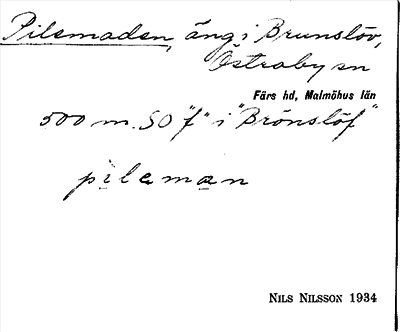 Pilsmaden, äng i Brunslöv,
Östraby sn
Färs hd, Malmöhus län
500 m. SO "f" i "Brönslöf"
pileman
NILS NILSSON 1934